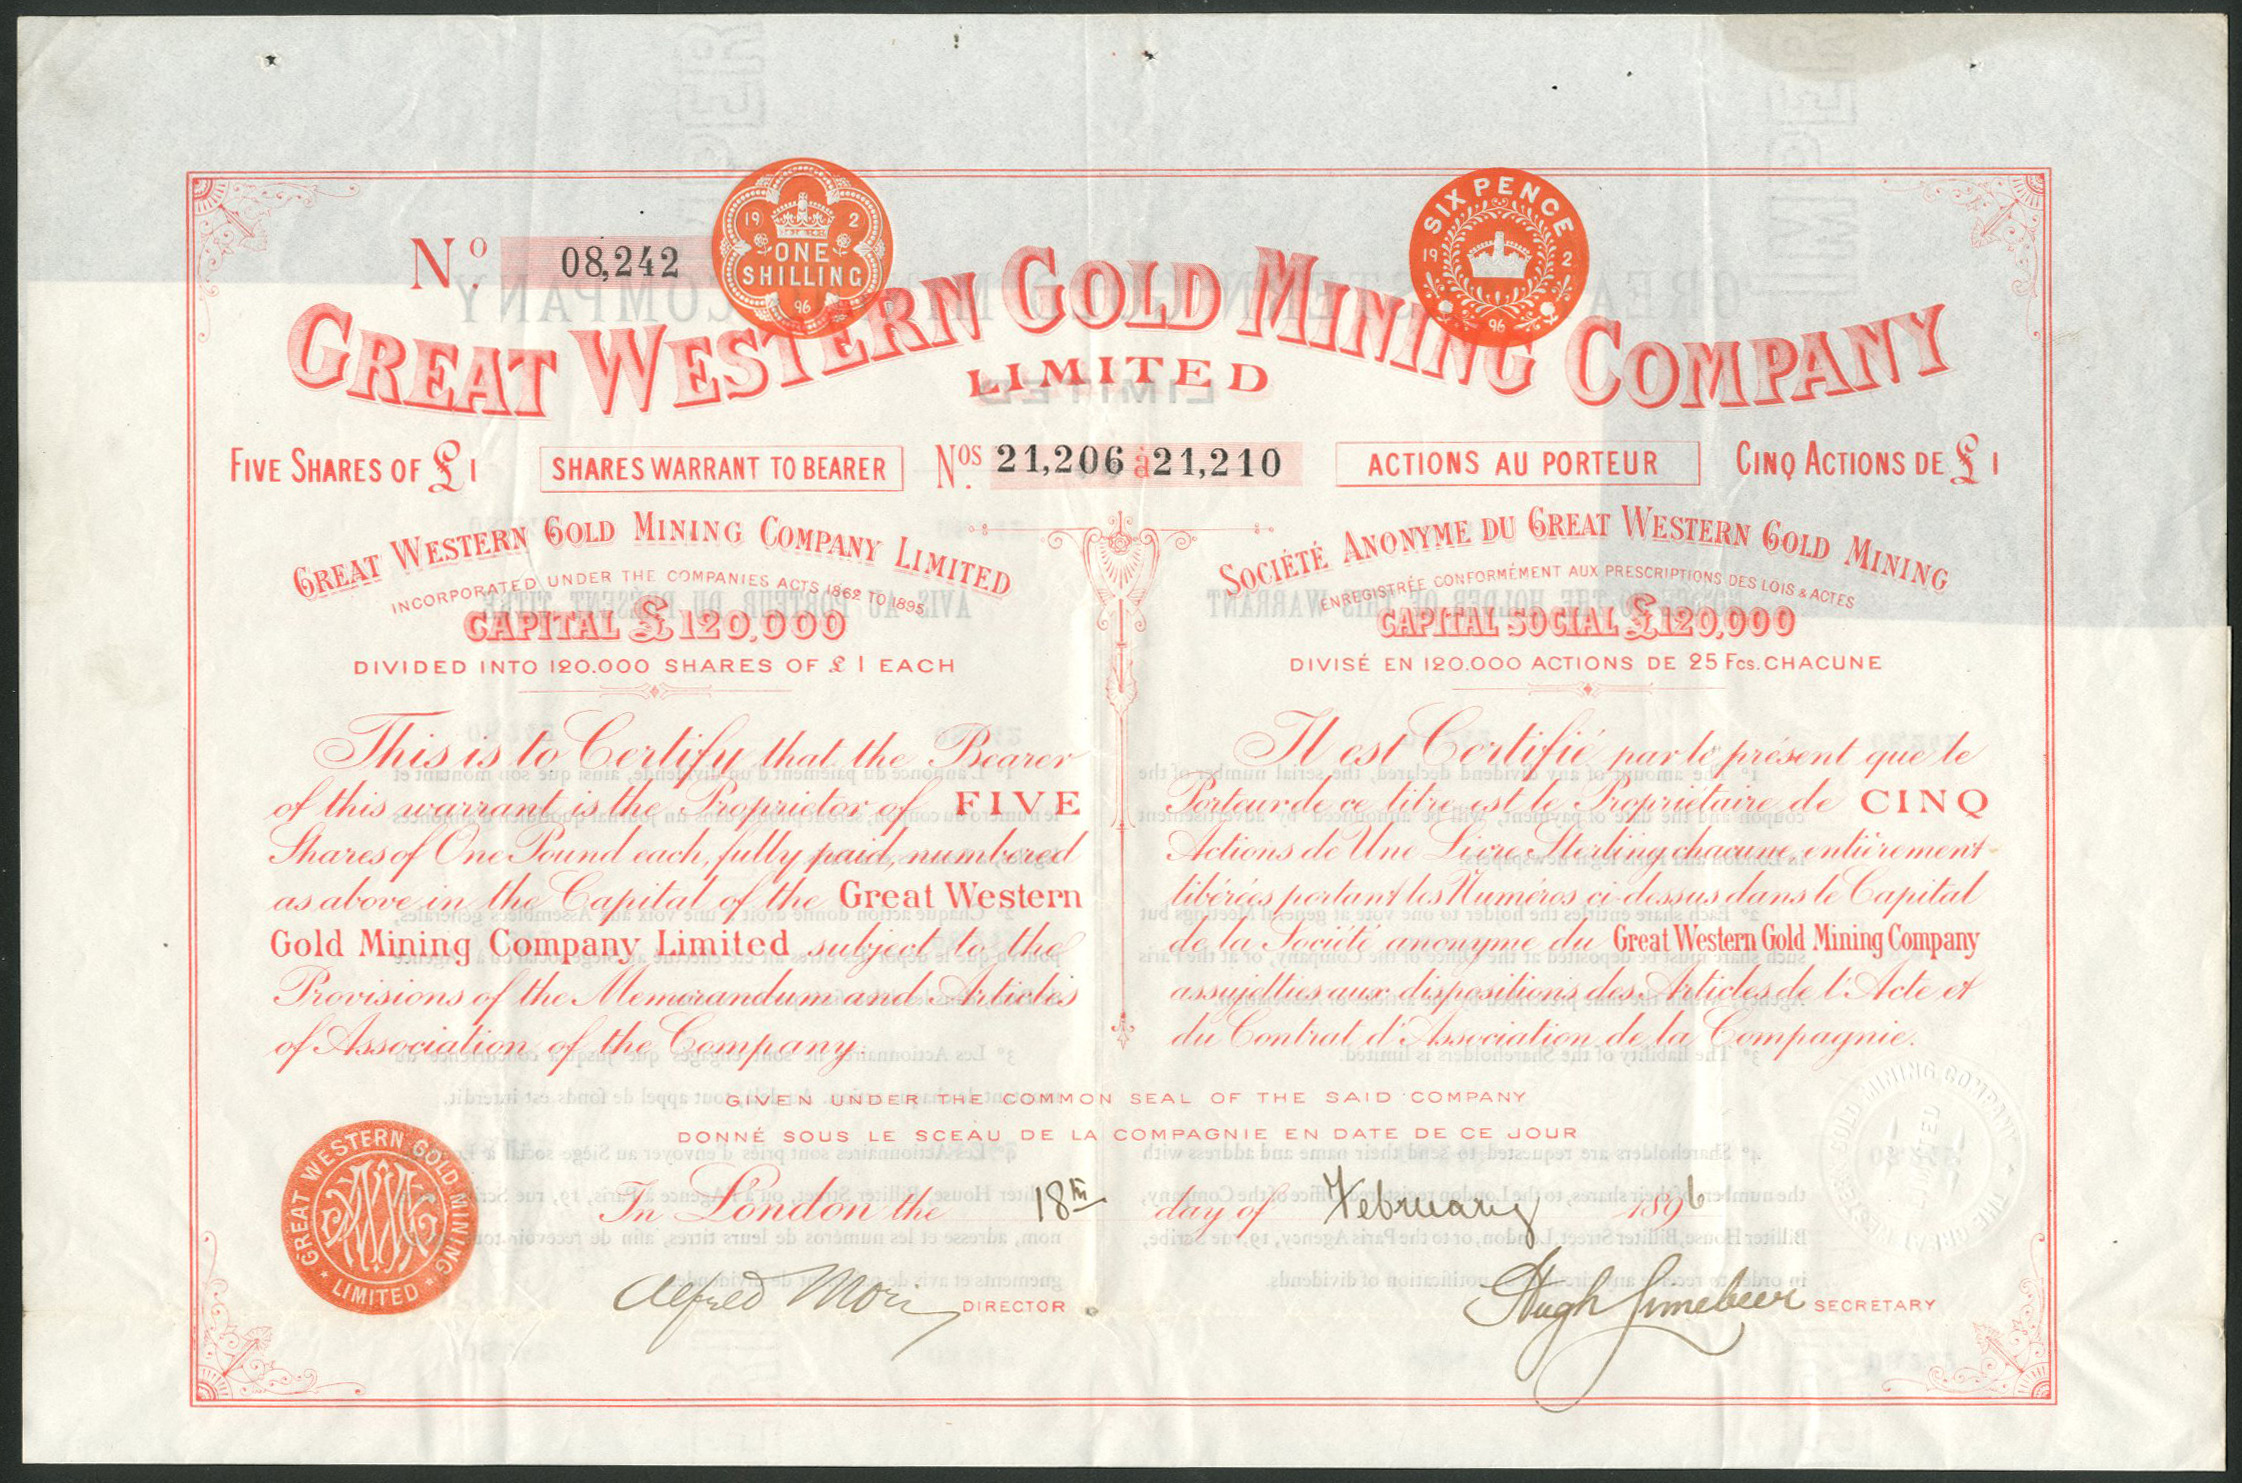 Nº 08,242
19 2 ONE SHILLING 96
SIX PENCE 19 2 96
GREAT WESTERN GOLD MINING COMPANY
LIMITED
FIVE SHARES OF £1
SHARES WARRANT TO BEARER
Nos. 21,206 à 21,210
ACTIONS AU PORTEUR
CINQ ACTIONS DE £1
GREAT WESTERN GOLD MINING COMPANY LIMITED
INCORPORATED UNDER THE COMPANIES ACTS 1862 TO 1895
CAPITAL £120,000
DIVIDED INTO 120.000 SHARES OF £1 EACH
This is to Certify that the Bearer
of this warrant is the Proprietor of FIVE
Shares of One Pound each, fully paid, numbered
as above in the Capital of the Great Western
Gold Mining Company Limited subject to the
Provisions of the Memorandum and Articles
of Association of the Company.
SOCIÉTÉ ANONYME DU GREAT WESTERN GOLD MINING
ENREGISTRÉE CONFORMÉMENT AUX PRESCRIPTIONS DES LOIS & ACTES
CAPITAL SOCIAL £120,000
DIVISÉ EN 120.000 ACTIONS DE 25 Fcs. CHACUNE
Il est Certifié par le présent que le
Porteur de ce titre est le Propriétaire de CINQ
Actions de Une Livre Sterling chacune, entièrement
libérées portant les Numéros ci-dessus dans le Capital
de la Société anonyme du Great Western Gold Mining Company
assujetties aux dispositions des Articles de l'Acte et
du Contrat d'Association de la Compagnie.
GIVEN UNDER THE COMMON SEAL OF THE SAID COMPANY
DONNÉ SOUS LE SCEAU DE LA COMPAGNIE EN DATE DE CE JOUR
In London the 18th day of February 1896
GREAT WESTERN GOLD MINING LIMITED
Alfred Mori DIRECTOR
Hugh SECRETARY